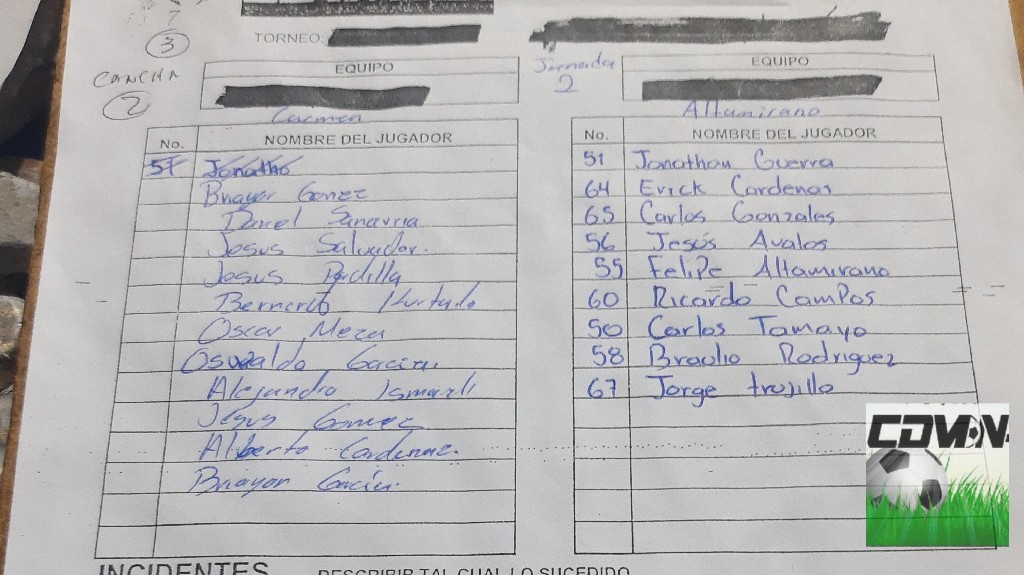 7
3
TORNEO:
CANCHA
2
EQUIPO
Carmen
Jornada
2
EQUIPO
Altamirano
No. NOMBRE DEL JUGADOR
57 Jonatho
Brayan Gomez
Daniel Sanavria
Jesus Salvador.
Jesus Padilla
Bernardo Hurtado
Oscar Meza
Osvaldo Garcia.
Alejandro Ismael
Jesus Gomez
Alberto Cardenaz.
Brayan Garcia.
No. NOMBRE DEL JUGADOR
51 Jonathan Guerra
64 Erick Cardenas
65 Carlos Gonzales
56 Jesús Avalos
55 Felipe Altamirano
60 Ricardo Campos
50 Carlos Tamayo
58 Braulio Rodriguez
67 Jorge trujillo
CDM
INCIDENTES DESCRIBIR TAL CUAL LO SUCEDIDO